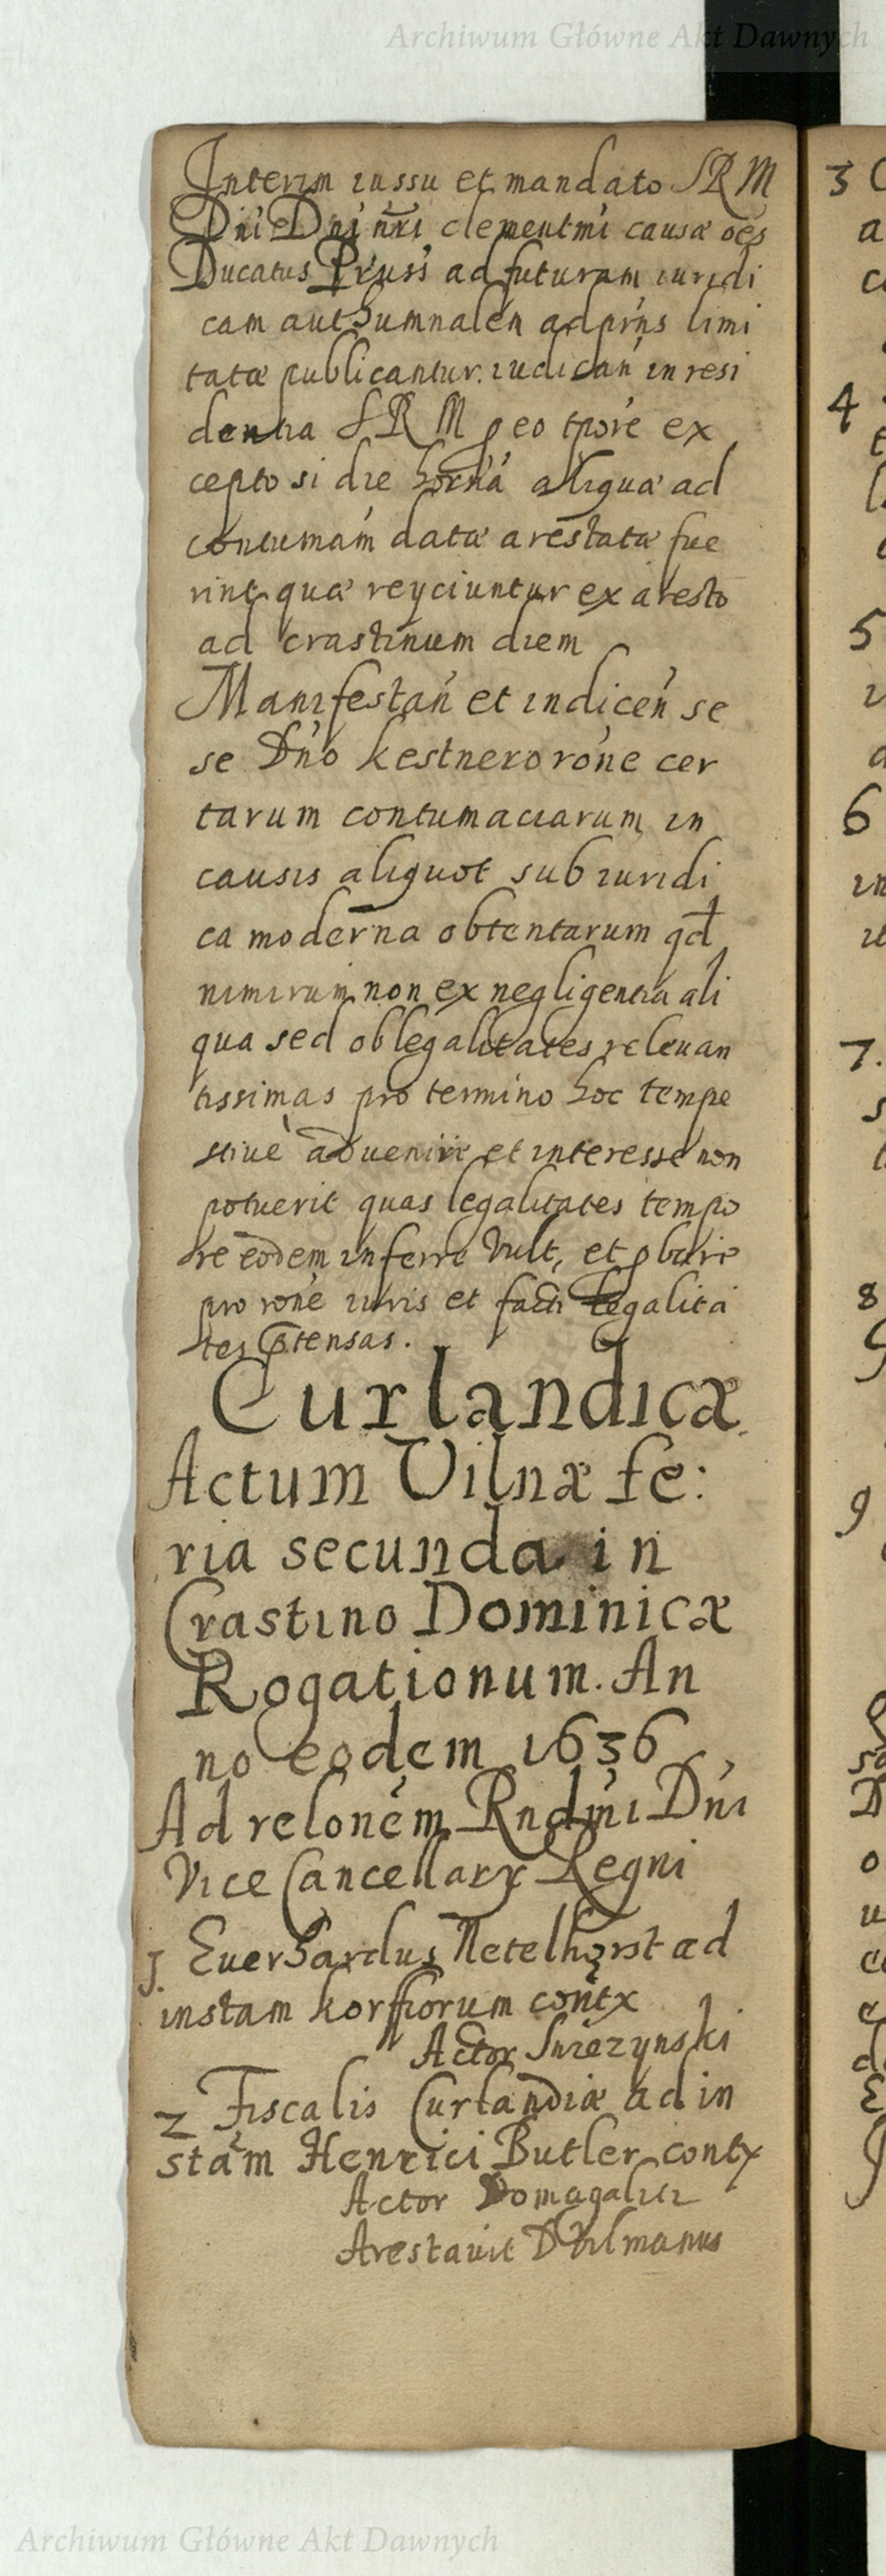 Archiwum Główne Akt Dawnych
Interim iussu et mandato SRM
Dni Dni nri clementmi causæ oes
Ducatus Prussi ad futuram iuridi
cam authumnalen ad prns limi
tatæ publicantur. iudican in resi
dentia SRM p eo tpore ex
cepto si die horna aliquæ ad
contumam datæ arestatæ fue
rint quæ reyciuntur ex aresto
ad crastinum diem
Manifestan et indicen se
se Dno Kestnero rone cer
tarum contumaciarum in
causis aliquot sub iuridi
ca moderna obtentarum qd
nimirum non ex negligentia ali
qua sed ob legalitates releuan
tissimas pro termino hoc tempe
stiue aduenire et interesse non
potuerit quas legalitates tempo
re eodem inferre vult, et pbare
pro rone iuris et facti legalita
tes ptensas.
Curlandicæ
Actum Vilnæ fe:
ria secunda in
Crastino Dominicæ
Rogationum. An
no eodem 1636
Ad relonem Rndmi Dni
Vice Cancellary Regni
1. Euerhardus Netelhorst ad
instam Korffiorum contx
Actor
2 Fiscalis Curlandiæ ad in
stam Henrici Butler contx
Actor
Arestauit D
3
a
4
5
6
in
7.
s
8
9
Archiwum Główne Akt Dawnych